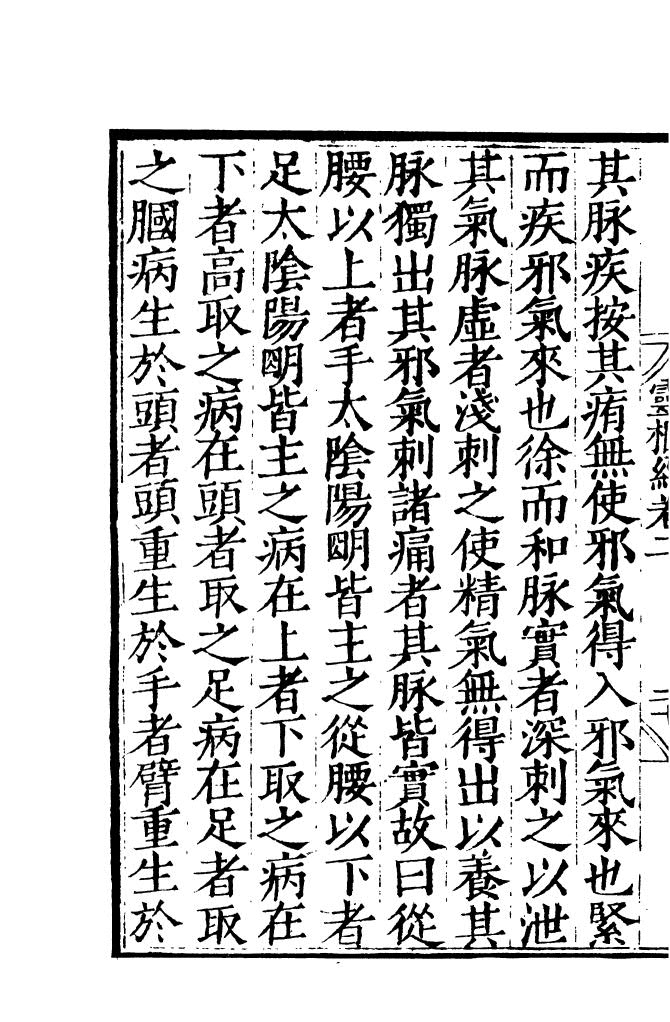 其脉疾按其痏無使邪氣得入邪氣來也緊
而疾邪氣來也徐而和脉實者深刺之以泄
其氣脉虛者淺刺之使精氣無得出以養其
脉獨出其邪氣刺諸痛者其脉皆實故曰從
腰以上者手太陰陽明皆主之從腰以下者
足太陰陽明皆主之病在上者下取之病在
下者高取之病在頭者取之足病在足者取
之膕病生於頭者頭重生於手者臂重生於